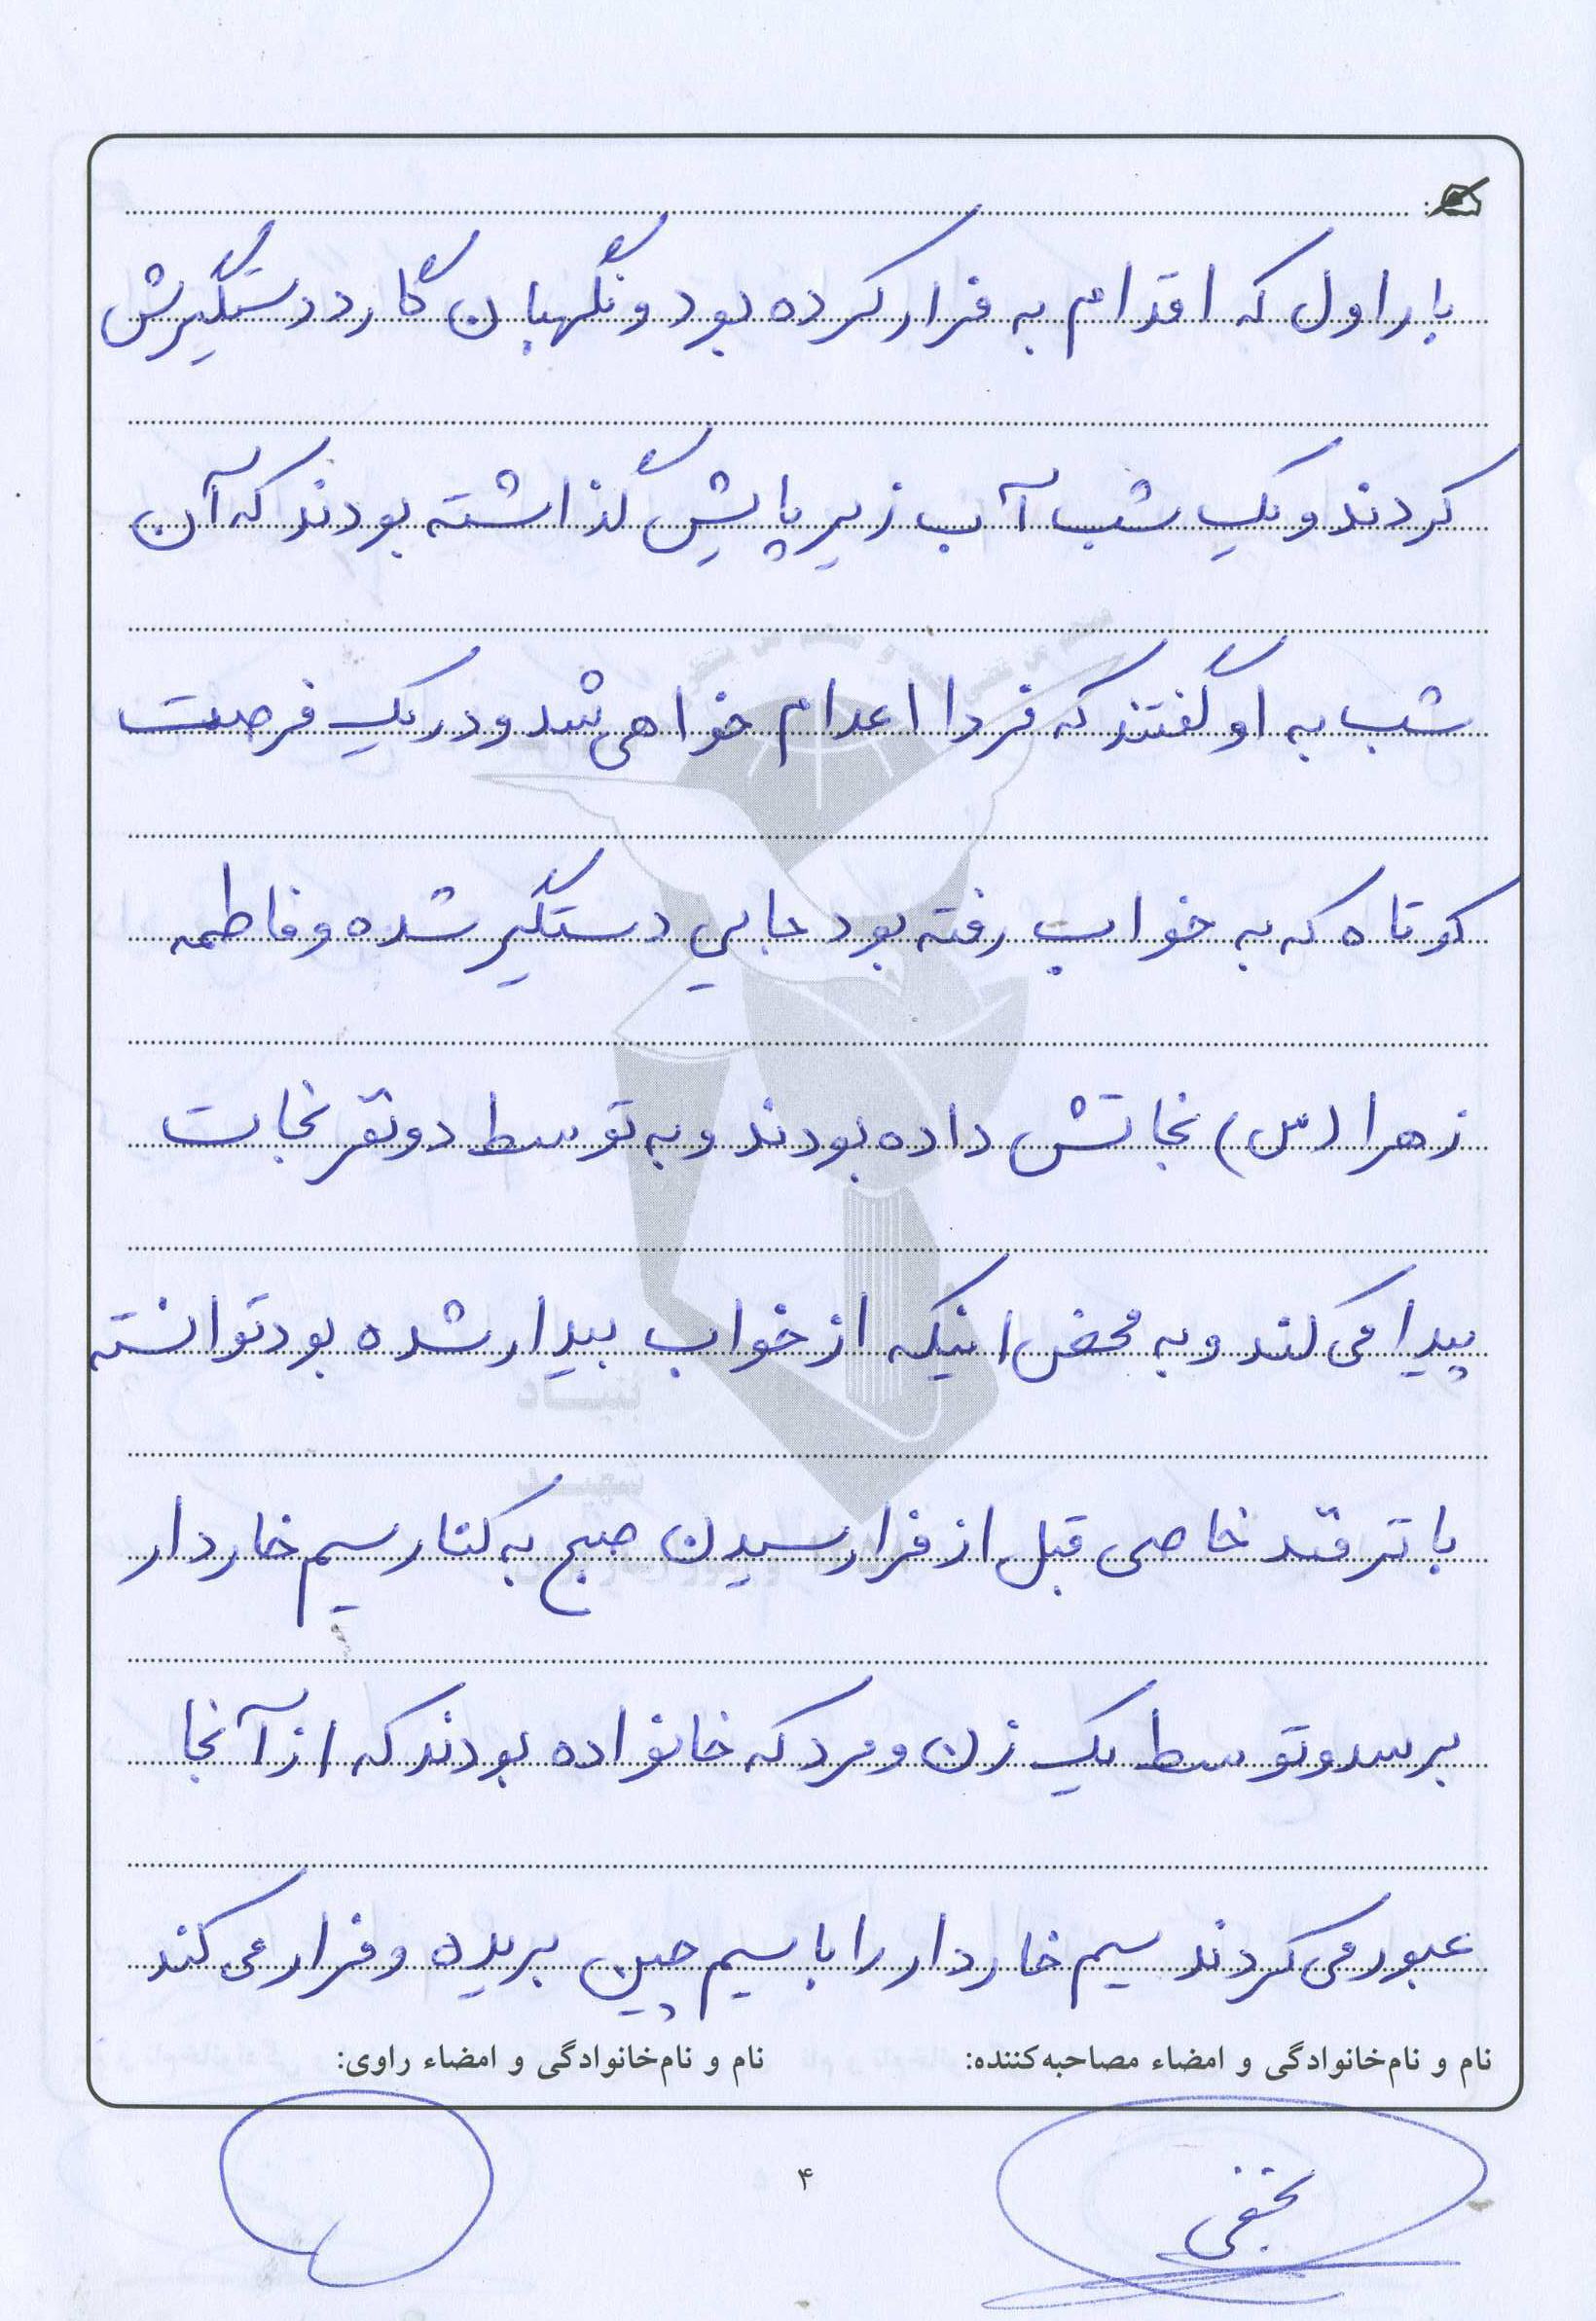 بار اول که اقدام به فرار کرده بود و نگهبان گارد دستگیرش
کردند و یک شب آب زیر پایش گذاشته بودند که آن
شب به او گفتند که فردا اعدام خواهی شد و در یک فرصت
کوتاه که به خواب رفته بود جایی دستگیر شده و فاطمه
زهرا (س) نجاتش داده بودند و به توسط دو نفر نجات
پیدا می کند و به محض اینکه از خواب بیدار شده بود توانسته
با ترفند خاصی قبل از فرا رسیدن صبح به کنار سیم خاردار
برسد و توسط یک زن و مرد که خانواده بودند که از آنجا
عبور می کردند سیم خاردار را با سیم چین بریده و فرار می کند
نام و نام‌خانوادگی و امضاء مصاحبه‌کننده: نام و نام‌خانوادگی و امضاء راوی:
نجفی
۴
بنیاد
شهید